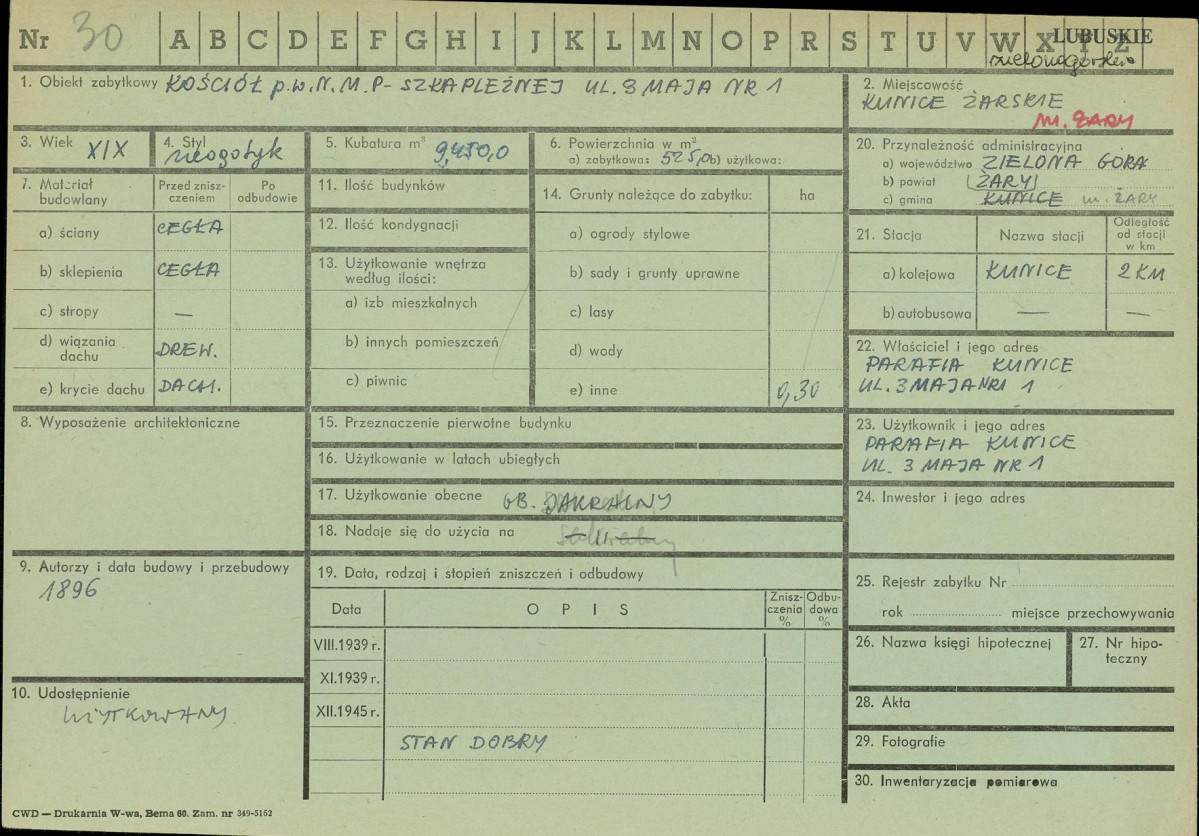 Nr 30 A B C D E F G H I J K L M N O P R S T U V W X Y Z
LUBUSKIE
zielonogórskie
1. Obiekt zabytkowy KOŚCIÓŁ p.w. N.M.P- SZKAPLEŻNEJ UL. 3 MAJA NR 1
2. Miejscowość
KUNICE ŻARSKIE
m. ŻARY
3. Wiek XIX
4. Styl
neogotyk
5. Kubatura m³
9,450,0
6. Powierzchnia w m²
a) zabytkowa: 525,0 b) użytkowa:
20. Przynależność administracyjna
a) województwo ZIELONA GÓRA
b) powiat ŻARY
c) gmina KUNICE m. ŻARY
7. Materiał budowlany
Przed zniszczeniem
Po odbudowie
a) ściany CEGŁA
b) sklepienia CEGŁA
c) stropy —
d) wiązania dachu DREW.
e) krycie dachu DACH.
11. Ilość budynków
12. Ilość kondygnacji
13. Użytkowanie wnętrza według ilości:
a) izb mieszkalnych
b) innych pomieszczeń
c) piwnic
14. Grunty należące do zabytku: ha
a) ogrody stylowe
b) sady i grunty uprawne
c) lasy
d) wody
e) inne 0,30
21. Stacja Nazwa stacji Odległość od stacji w km
a) kolejowa KUNICE 2 KM
b) autobusowa — —
22. Właściciel i jego adres
PARAFIA KUNICE
UL. 3 MAJA NR 1
8. Wyposażenie architektoniczne
15. Przeznaczenie pierwotne budynku
16. Użytkowanie w latach ubiegłych
17. Użytkowanie obecne OB. SAKRALNY
18. Nadaje się do użycia na — 11 —
sakralny
23. Użytkownik i jego adres
PARAFIA KUNICE
UL. 3 MAJA NR 1
24. Inwestor i jego adres
9. Autorzy i data budowy i przebudowy
1896
19. Data, rodzaj i stopień zniszczeń i odbudowy
Data OPIS Zniszczenia % Odbudowa %
VIII.1939 r.
XI.1939 r.
XII.1945 r.
STAN DOBRY
10. Udostępnienie
UŻYTKOWANY
25. Rejestr zabytku Nr
rok miejsce przechowywania
26. Nazwa księgi hipotecznej
27. Nr hipoteczny
28. Akta
29. Fotografie
30. Inwentaryzacja pomiarowa
CWD — Drukarnia W-wa, Bema 60. Zam. nr 349-5162